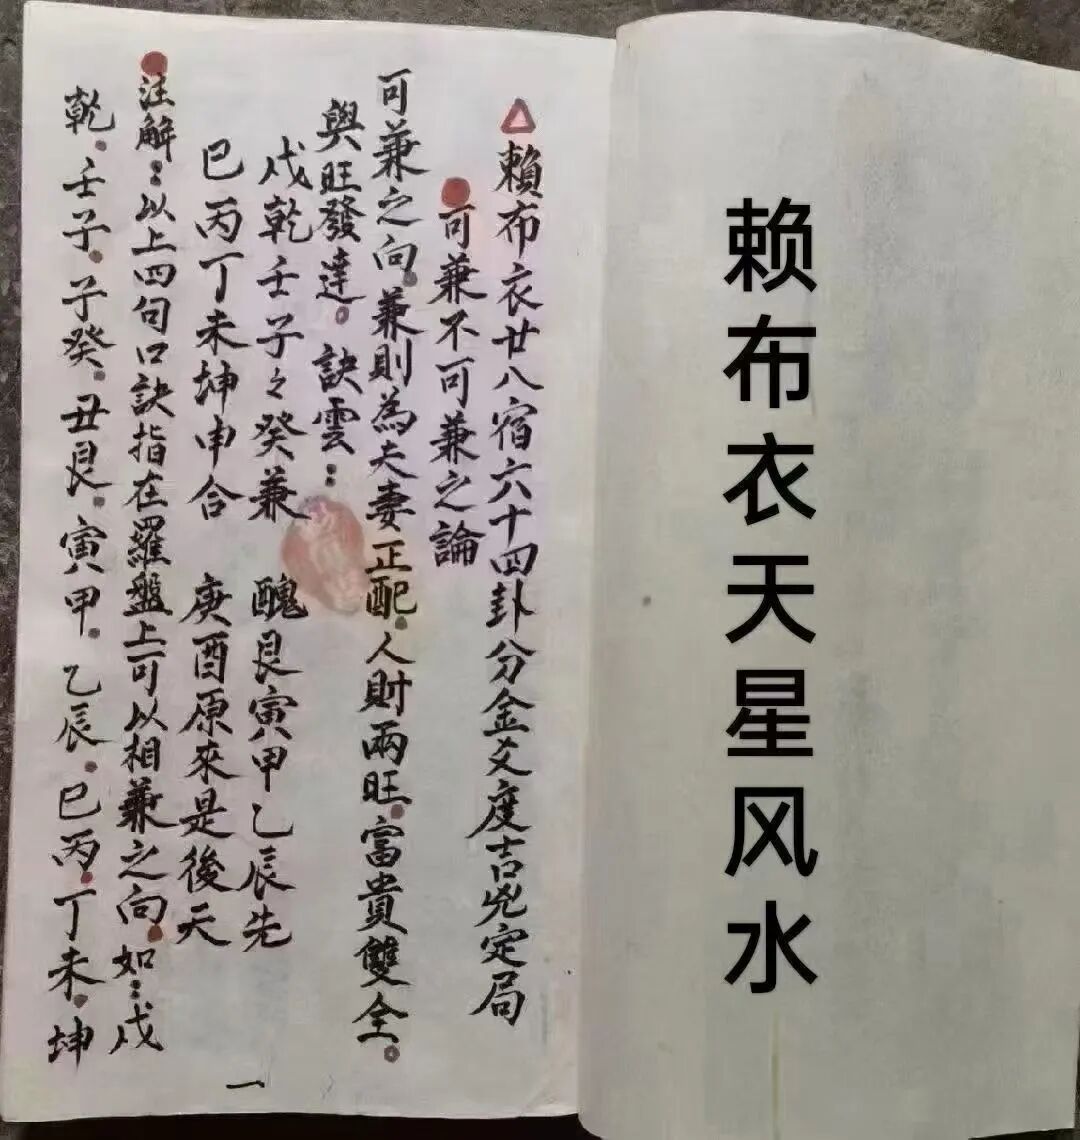 赖布衣天星风水
△賴布衣廿八宿六十四卦分金爻度吉兇定局
可兼不可兼之論
可兼之向。兼則為夫妻正配。人財兩旺。富貴雙全。
與旺發達。訣雲：
戌乾壬子々癸兼 醜艮寅甲乙辰先
巳丙丁未坤申合 庚酉原來是後天
注解：以上四句口訣指在羅盤上可以相兼之向。如：戌
乾。壬子。子癸。丑艮。寅甲。乙辰。巳丙。丁未。坤
一